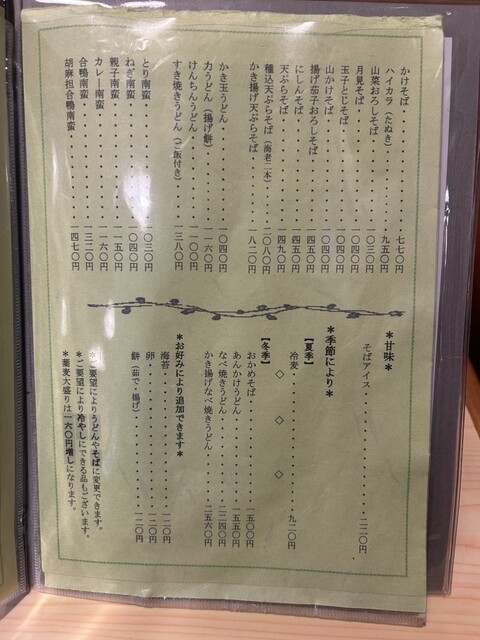 かけそば・・・・・・・・七七〇円
ハイカラ（たぬき）・・・・・九五〇円
山菜おろしそば・・・・・一〇三〇円
月見そば・・・・・・・・一〇四〇円
玉子とじそば・・・・・・一〇四〇円
山かけそば・・・・・・・一〇四〇円
揚げ茄子おろしそば・・・・一四五〇円
にしんそば・・・・・・・一四五〇円
天ぷらそば・・・・・・・一四九〇円
種込天ぷらそば（海老二本）・・二〇八〇円
かき揚げ天ぷらそば・・・・一八二〇円
かき玉うどん・・・・・・一〇四〇円
力うどん（揚げ餅）・・・・一一六〇円
けんちんうどん・・・・・一一〇〇円
すき焼きうどん（ご飯付き）・・一三八〇円
とり南蛮・・・・・・・・一〇三〇円
ねぎ南蛮・・・・・・・・一〇四〇円
親子南蛮・・・・・・・・一一五〇円
カレー南蛮・・・・・・・一一六〇円
合鴨南蛮・・・・・・・・一三二〇円
胡麻担合鴨南蛮・・・・・一四七〇円
＊甘味＊
そばアイス・・・・・・・二二〇円
＊季節により＊
【夏季】
冷麦・・・・・・・・・・九二〇円
◇　◇　◇
【冬季】
おかめそば・・・・・・・一五〇〇円
あんかけうどん・・・・・一五五〇円
なべ焼きうどん・・・・・二二四〇円
かき揚げなべ焼きうどん・・・二五六〇円
＊お好みにより追加できます＊
海苔・・・・・・・・・・一二〇円
卵・・・・・・・・・・・一二〇円
餅（茹で・揚げ）・・・・・一二〇円
＊ご要望によりうどんやそばに変更できます。
＊ご要望により冷やしにできる品もございます。
＊蕎麦大盛りは一六〇円増しになります。